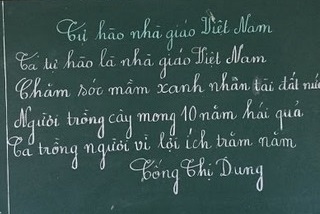 Tự hào nhà giáo Việt Nam
Ta tự hào là nhà giáo Việt Nam
Chăm sóc mầm xanh nhân tài đất nước
Người trồng cây mong 10 năm hái quả
Ta trồng người vì lợi ích trăm năm
Tống Thị Dung